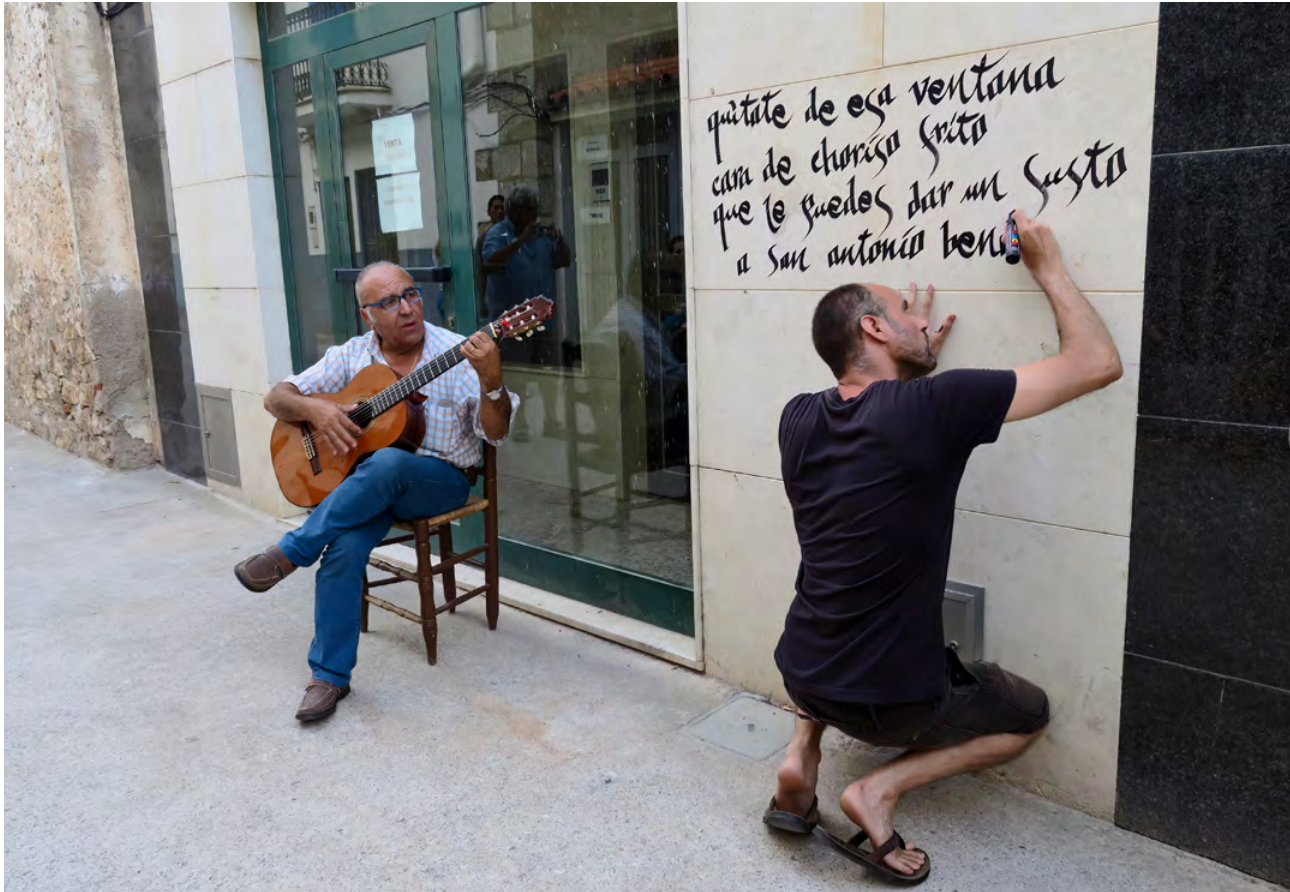 VENTA
quitate de esa ventana
cara de choriso frito
que le puedes dar un susto
a san antonio ben